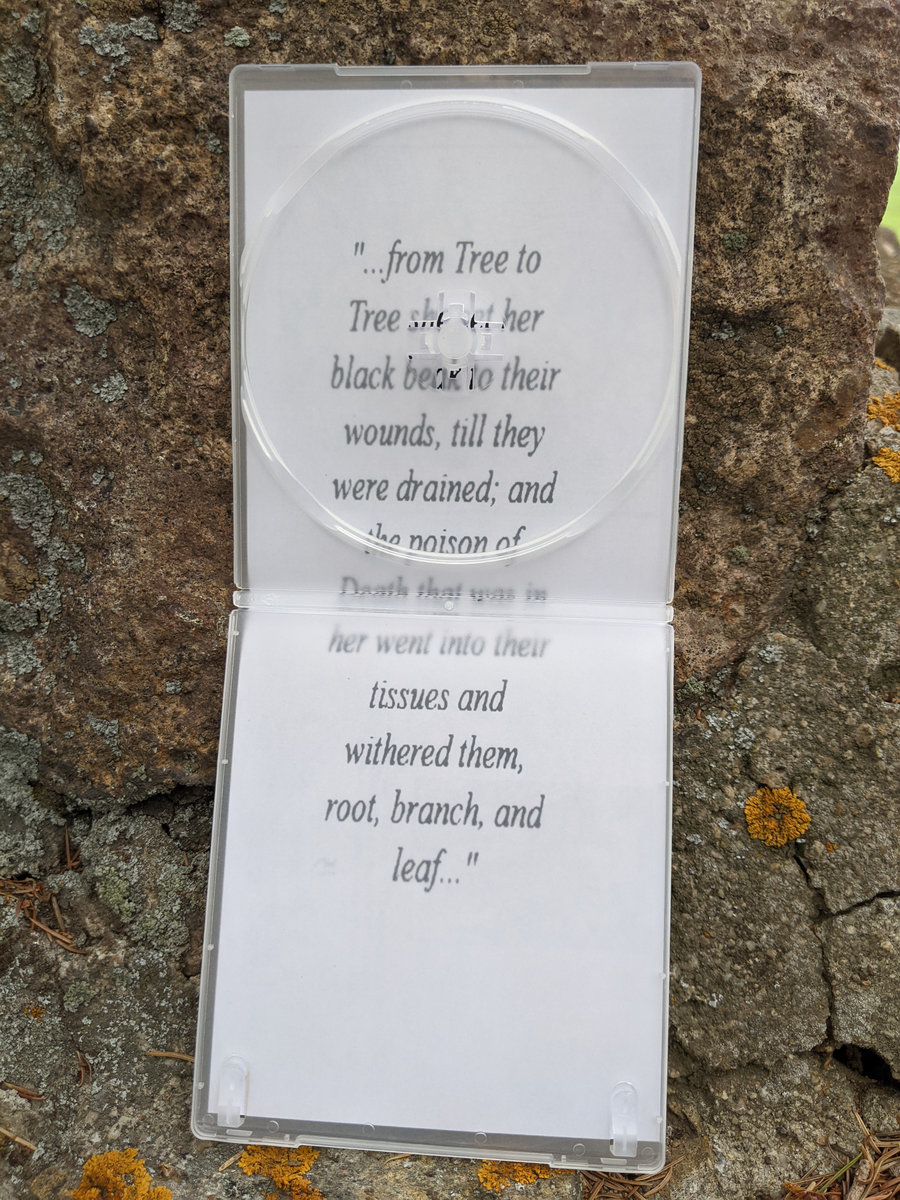 "...from Tree to
Tree she set her
black beak to their
wounds, till they
were drained; and
the poison of
Death that was in
her went into their
tissues and
withered them,
root, branch, and
leaf..."